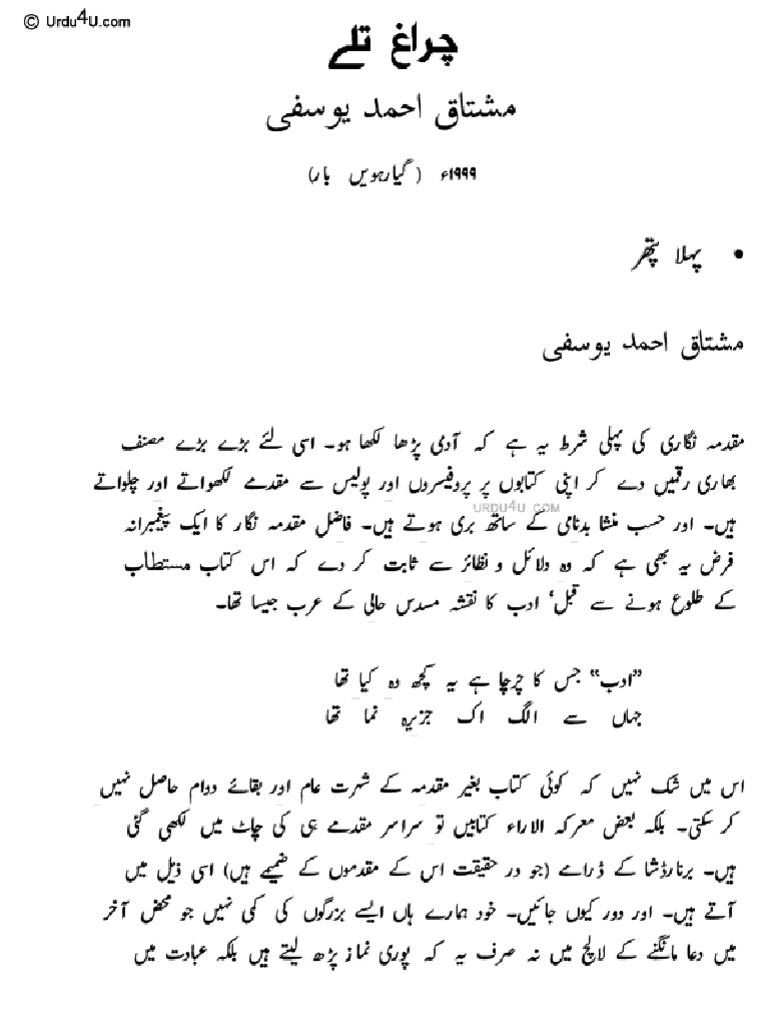 © Urdu4U.com
چراغ تلے
مشتاق احمد یوسفی
۱۹۹۹ء (گیارہویں بار)
• پہلا پتھر
مشتاق احمد یوسفی
مقدمہ نگاری کی پہلی شرط یہ ہے کہ آدمی پڑھا لکھا ہو۔ اسی لئے بڑے بڑے مصنف
بھاری رقمیں دے کر اپنی کتابوں پر پروفیسروں اور پولیس سے مقدمے لکھواتے اور چلواتے
URDU4U.COM
ہیں۔ اور حسب منشا بدنامی کے ساتھ بری ہوتے ہیں۔ فاضل مقدمہ نگار کا ایک پیغمبرانہ
فرض یہ بھی ہے کہ وہ دلائل و نظائر سے ثابت کر دے کہ اس کتاب مستطاب
کے طلوع ہونے سے قبل‘ ادب کا نقشہ مسدس حالی کے عرب جیسا تھا۔
”ادب“ جس کا چرچا ہے یہ کچھ وہ کیا تھا
جہاں سے الگ اک جزیرہ نما تھا
اس میں شک نہیں کہ کوئی کتاب بغیر مقدمہ کے شہرت عام اور بقائے دوام حاصل نہیں
کر سکتی۔ بلکہ بعض معرکہ الاراء کتابیں تو سراسر مقدمے ہی کی چاٹ میں لکھی گئی
ہیں۔ برنارڈشا کے ڈرامے (جو در حقیقت اس کے مقدموں کے ضمیمے ہیں) اسی ذیل میں
آتے ہیں۔ اور دور کیوں جائیں۔ خود ہمارے ہاں ایسے بزرگوں کی کمی نہیں جو محض آخر
میں دعا مانگنے کے لالچ میں نہ صرف یہ کہ پوری نماز پڑھ لیتے ہیں بلکہ عبادت میں